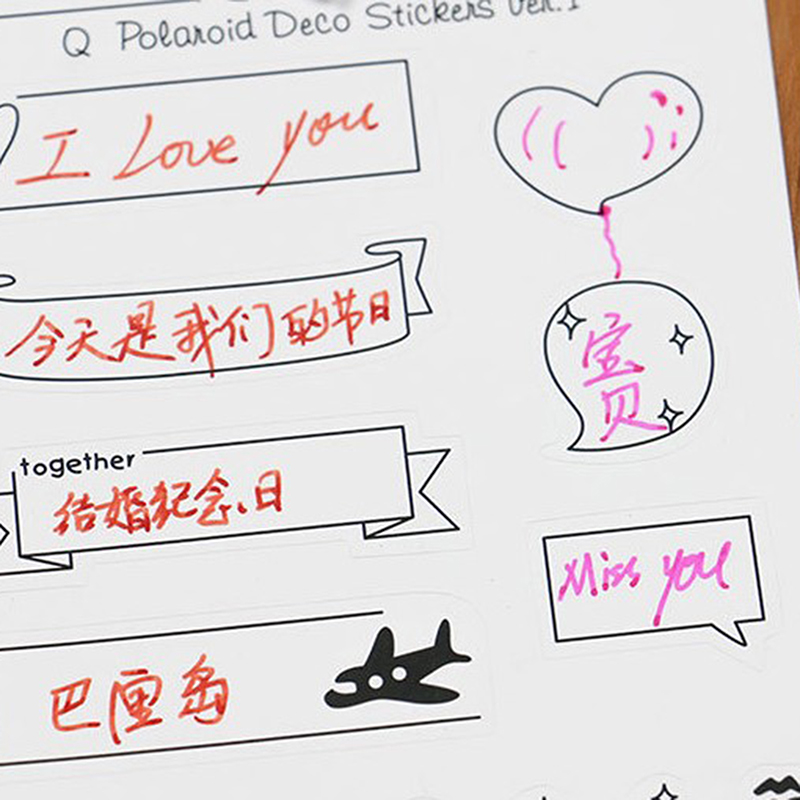 Q Polaroid Deco Stickers Ver.1
I Love you
今天是我们的节日
together
结婚纪念日
巴厘岛
宝
贝
Miss you